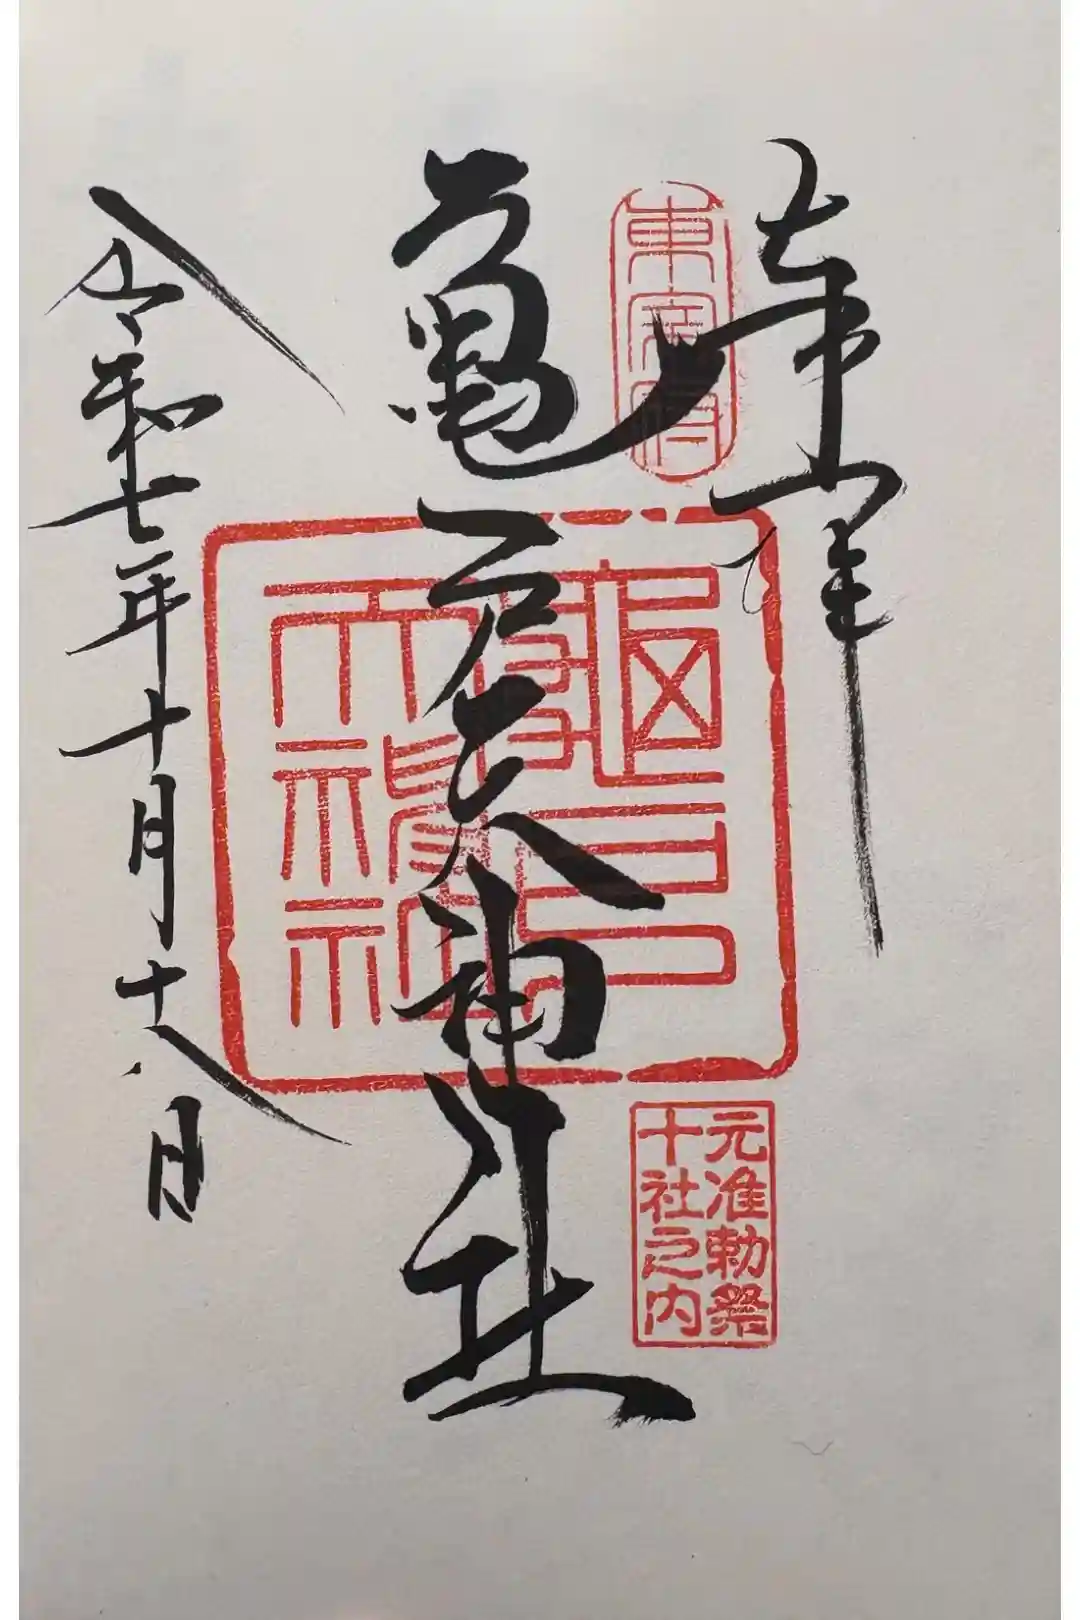 奉拝
東宰府
亀戸天神社
龜戸
天神社
元准勅祭
十社之内
令和七年十月十八日